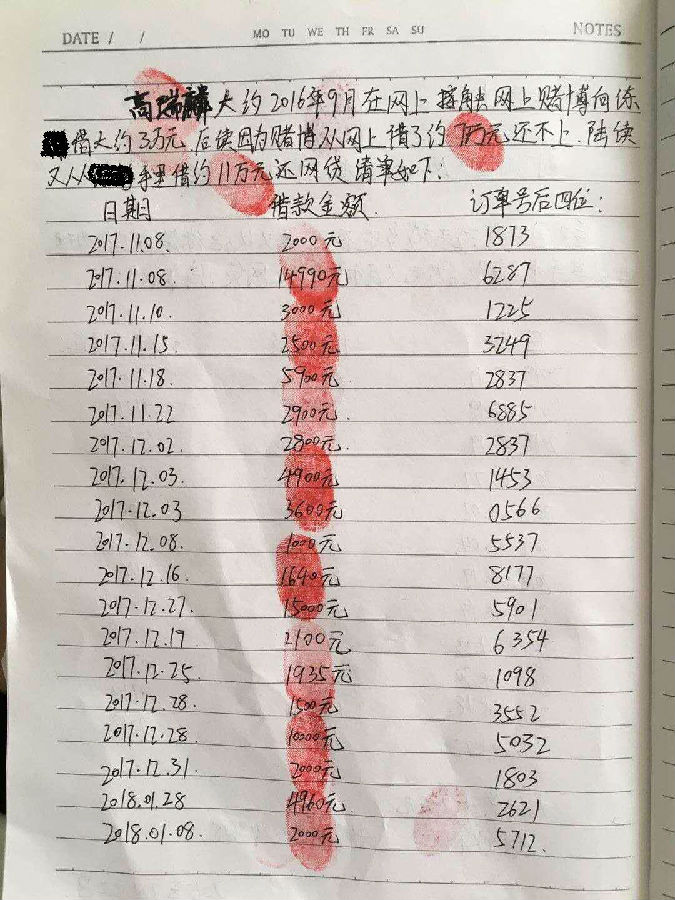 DATE / /
MO TU WE TH FR SA SU
NOTES
高瑞麟大约2016年9月在网上接触网上赌博向徐
借大约3万元,后续因为赌博从网上借了约7万元还不上.陆续
又从手里借约11万元还网贷 清单如下:
日期 借款金额 订单号后四位:
2017.11.08. 2000元 1873
2017.11.08. 14990元 6287
2017.11.10. 3000元 1225
2017.11.15. 2500元 3249
2017.11.18. 5900元 2837
2017.11.22 2900元 6885
2017.12.02. 2800元. 2837
2017.12.03. 4900元 1453
2017.12.03 3600元 0566
2017.12.08. 1000元 5537
2017.12.16. 1640元 8177
2017.12.27. 15000元 5901
2017.12.19 2100元 6354
2017.12.25 1935元 1098
2017.12.28 1500元 3552
2017.12.28 10000元 5032
2017.12.31. 2000元 1803
2018.01.28 4960元 2621
2018.01.08. 2000元 5712.